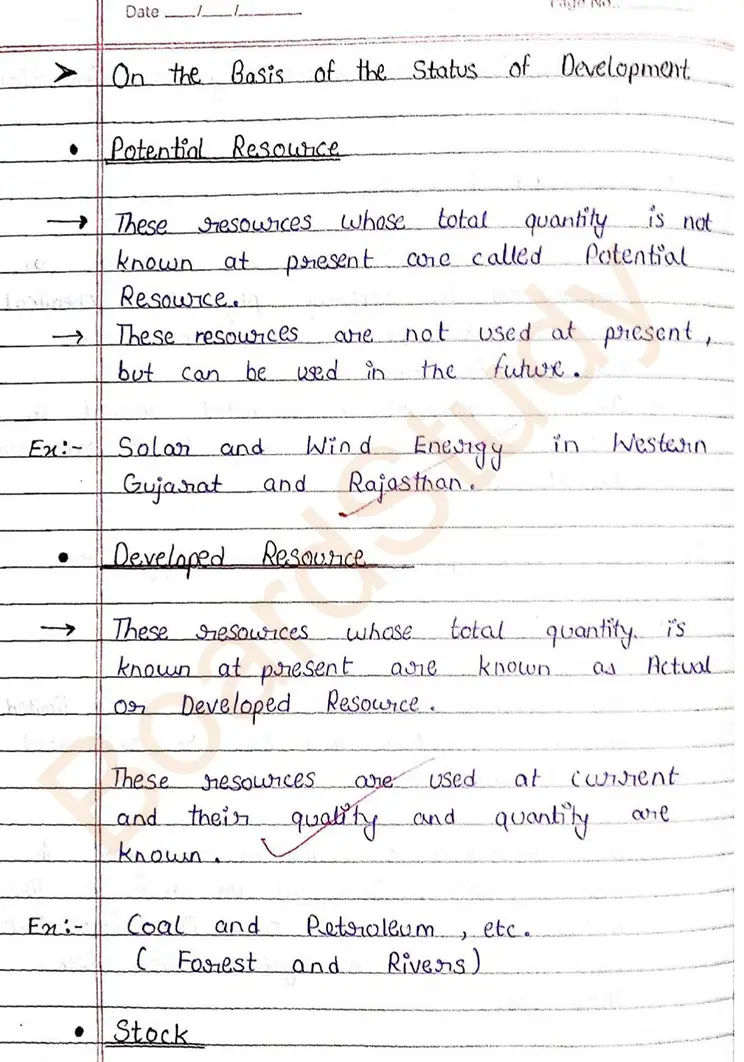 Date __/__/__
Page No.
➤ On the Basis of the Status of Development
• Potential Resource
→ These resources whose total quantity is not
known at present are called Potential
Resource.
→ These resources are not used at present,
but can be used in the future.
Ex:- Solar and Wind Energy in Western
Gujarat and Rajasthan.
• Developed Resource
→ These resources whose total quantity is
known at present are known as Actual
or Developed Resource.
These resources are used at current
and their quality and quantity are
known.
Ex:- Coal and Petroleum, etc.
( Forest and Rivers)
• Stock
BoardStudy